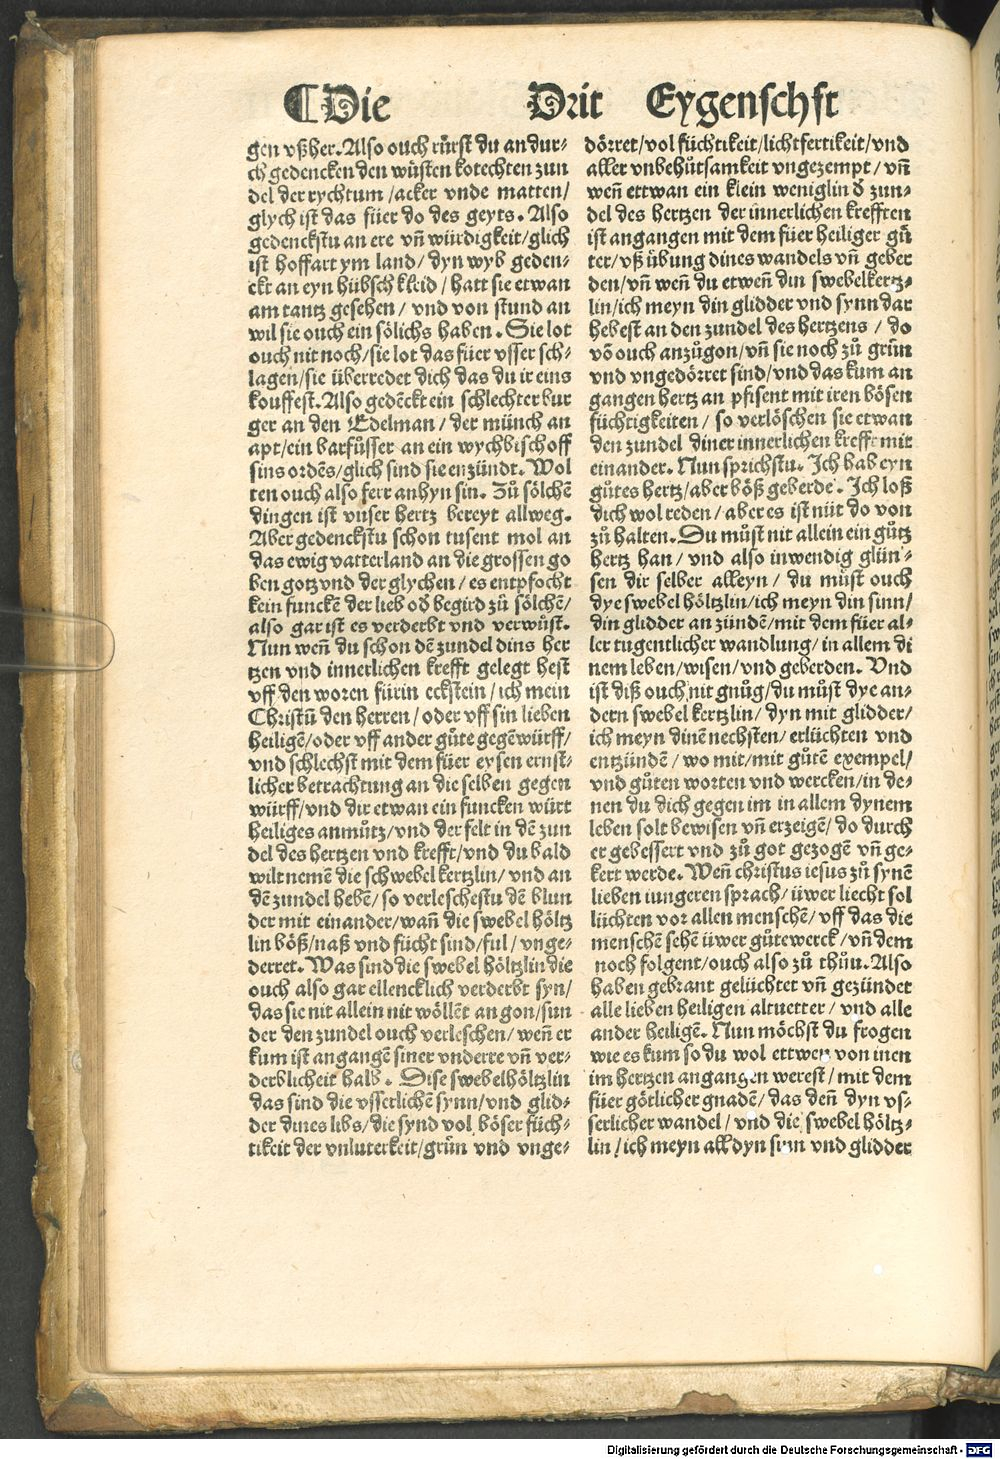 Die Drit Eygenschft
gen vßher. Also ouch rürst du an dur⸗
ch gedencken den wüsten kotechten zun
del der rychtum / acker vnde matten /
glych ist das füer do des geyts. Also
gedenckstu an ere vñ würdigkeit / glich
ist hoffart ym land / dyn wyb geden⸗
ckt an eyn hübsch kleid / hatt sie etwan
am tantz gesehen / vnd von stund an
wil sie ouch ein sölichs haben. Sie lot
ouch nit noch / sie lot das füer vsser sch⸗
lagen / sie überredet dich das du ir eins
kouffest. Also gedēckt ein schlechter bur
ger an den Edelman / der münch an
apt / ein barfůsser an ein wychbischoff
sins ordēs / glich sind sie enzündt. Wol
ten ouch also ferr anhyn sin. Zů sölchē
dingen ist vnser hertz bereyt allweg.
Aber gedenckstu schon tusent mol an
das ewig vatterland an die grossen go
ben gotz vnd der glychen / es entpfocht
kein funckē der lieb oď begird zů sölchē /
also gar ist es verderbt vnd verwüst.
Nun weñ du schon dē zundel dins her
tzen vnd innerlichen krefft gelegt hest
vff den woren fürin eckstein / ich mein
Christū den herren / oder vff sin lieben
heiligē / oder vff ander gůte gegēwürff /
vnd schlechst mit dem füer eysen ernst⸗
licher betrachtung an die selben gegen
würff / vnd dir etwan ein funcken würt
heiliges anmůtz / vnd der felt in dē zun
del des hertzen vnd krefft / vnd du bald
wilt nemē die schwebel kertzlin / vnd an
dē zundel hebē / so verleschestu dē blun
der mit einander / wañ die swebel höltz
lin böß / naß vnd fücht sind / ful / vnge⸗
derret. Was sind die swebel höltzlin die
ouch also gar ellencklich verderbt syn /
das sie nit allein nit wöllēt an gon / sun
der den zundel ouch verleschen / weñ er
kum ist angangē siner vnderre vñ ver⸗
derblicheit halb. Dise swebelhöltzlin
das sind die vsserlichē synn / vnd glid⸗
der dines libs / die synd vol böser füch⸗
tikeit der vnluterkeit / grün vnd vnge⸗
dörret / vol füchtikeit / lichtfertikeit / vnd
aller vnbehůtsamkeit vngezempt / vñ
weñ ettwan ein klein weniglin ď zun⸗
del des hertzen der innerlichen krefften
ist angangen mit dem füer heiliger gů
ter / vß übung dines wandels vñ geber
den / vñ weñ du etweñ din swebelkertz⸗
lin / ich meyn din glidder vnd synn dar
hebest an den zundel des hertzens / do
vō ouch anzůgon / vñ sie noch zů grün
vnd vngedörret sind / vnd das kum an
gangen hertz an pfisent mit iren bösen
füchtigkeiten / so verlöschen sie etwan
den zundel diner innerlichen krefft mit
einander. Nun sprichstu. Ich hab eyn
gůtes hertz / aber böß geberde. Ich loß
dich wol reden / aber es ist nüt do von
zů halten. Du můst nit allein ein gůtz
hertz han / vnd also inwendig glün⸗
sen dir selber alleyn / du můst ouch
dye swebel höltzlin / ich meyn din sinn /
din glidder an zündē / mit dem füer al⸗
ler tugentlicher wandlung / in allem di
nem leben / wisen / vnd geberden. Vnd
ist diß ouch nit gnůg / du můst dye an⸗
dern swebel kertzlin / dyn mit glidder /
ich meyn dinē nechsten / erlüchten vnd
entzündē / wo mit / mit gůtē exempel /
vnd gůten worten vnd wercken / in de⸗
nen du dich gegen im in allem dynem
leben solt bewisen vñ erzeigē / do durch
er gebessert vnd zů got gezogē vñ ge⸗
kert werde. Weñ christus iesus zů synē
lieben iungeren sprach / üwer liecht sol
lüchten vor allen menschē / vff das die
menschē sehē üwer gůte werck / vñ dem
noch folgent / ouch also zů thůn. Also
haben gebrant gelüchtet vñ gezündet
alle lieben heiligen altuetter / vnd alle
ander heiligē. Nun möchst du frogen
wie es kum so du wol ettwen von inen
im hertzen angangen werest / mit dem
füer götlicher gnadē / das deñ dyn vs⸗
serlicher wandel / vnd die swebel höltz⸗
lin / ich meyn all dyn sinn vnd glidder
Digitalisierung gefördert durch die Deutsche Forschungsgemeinschaft - DFG